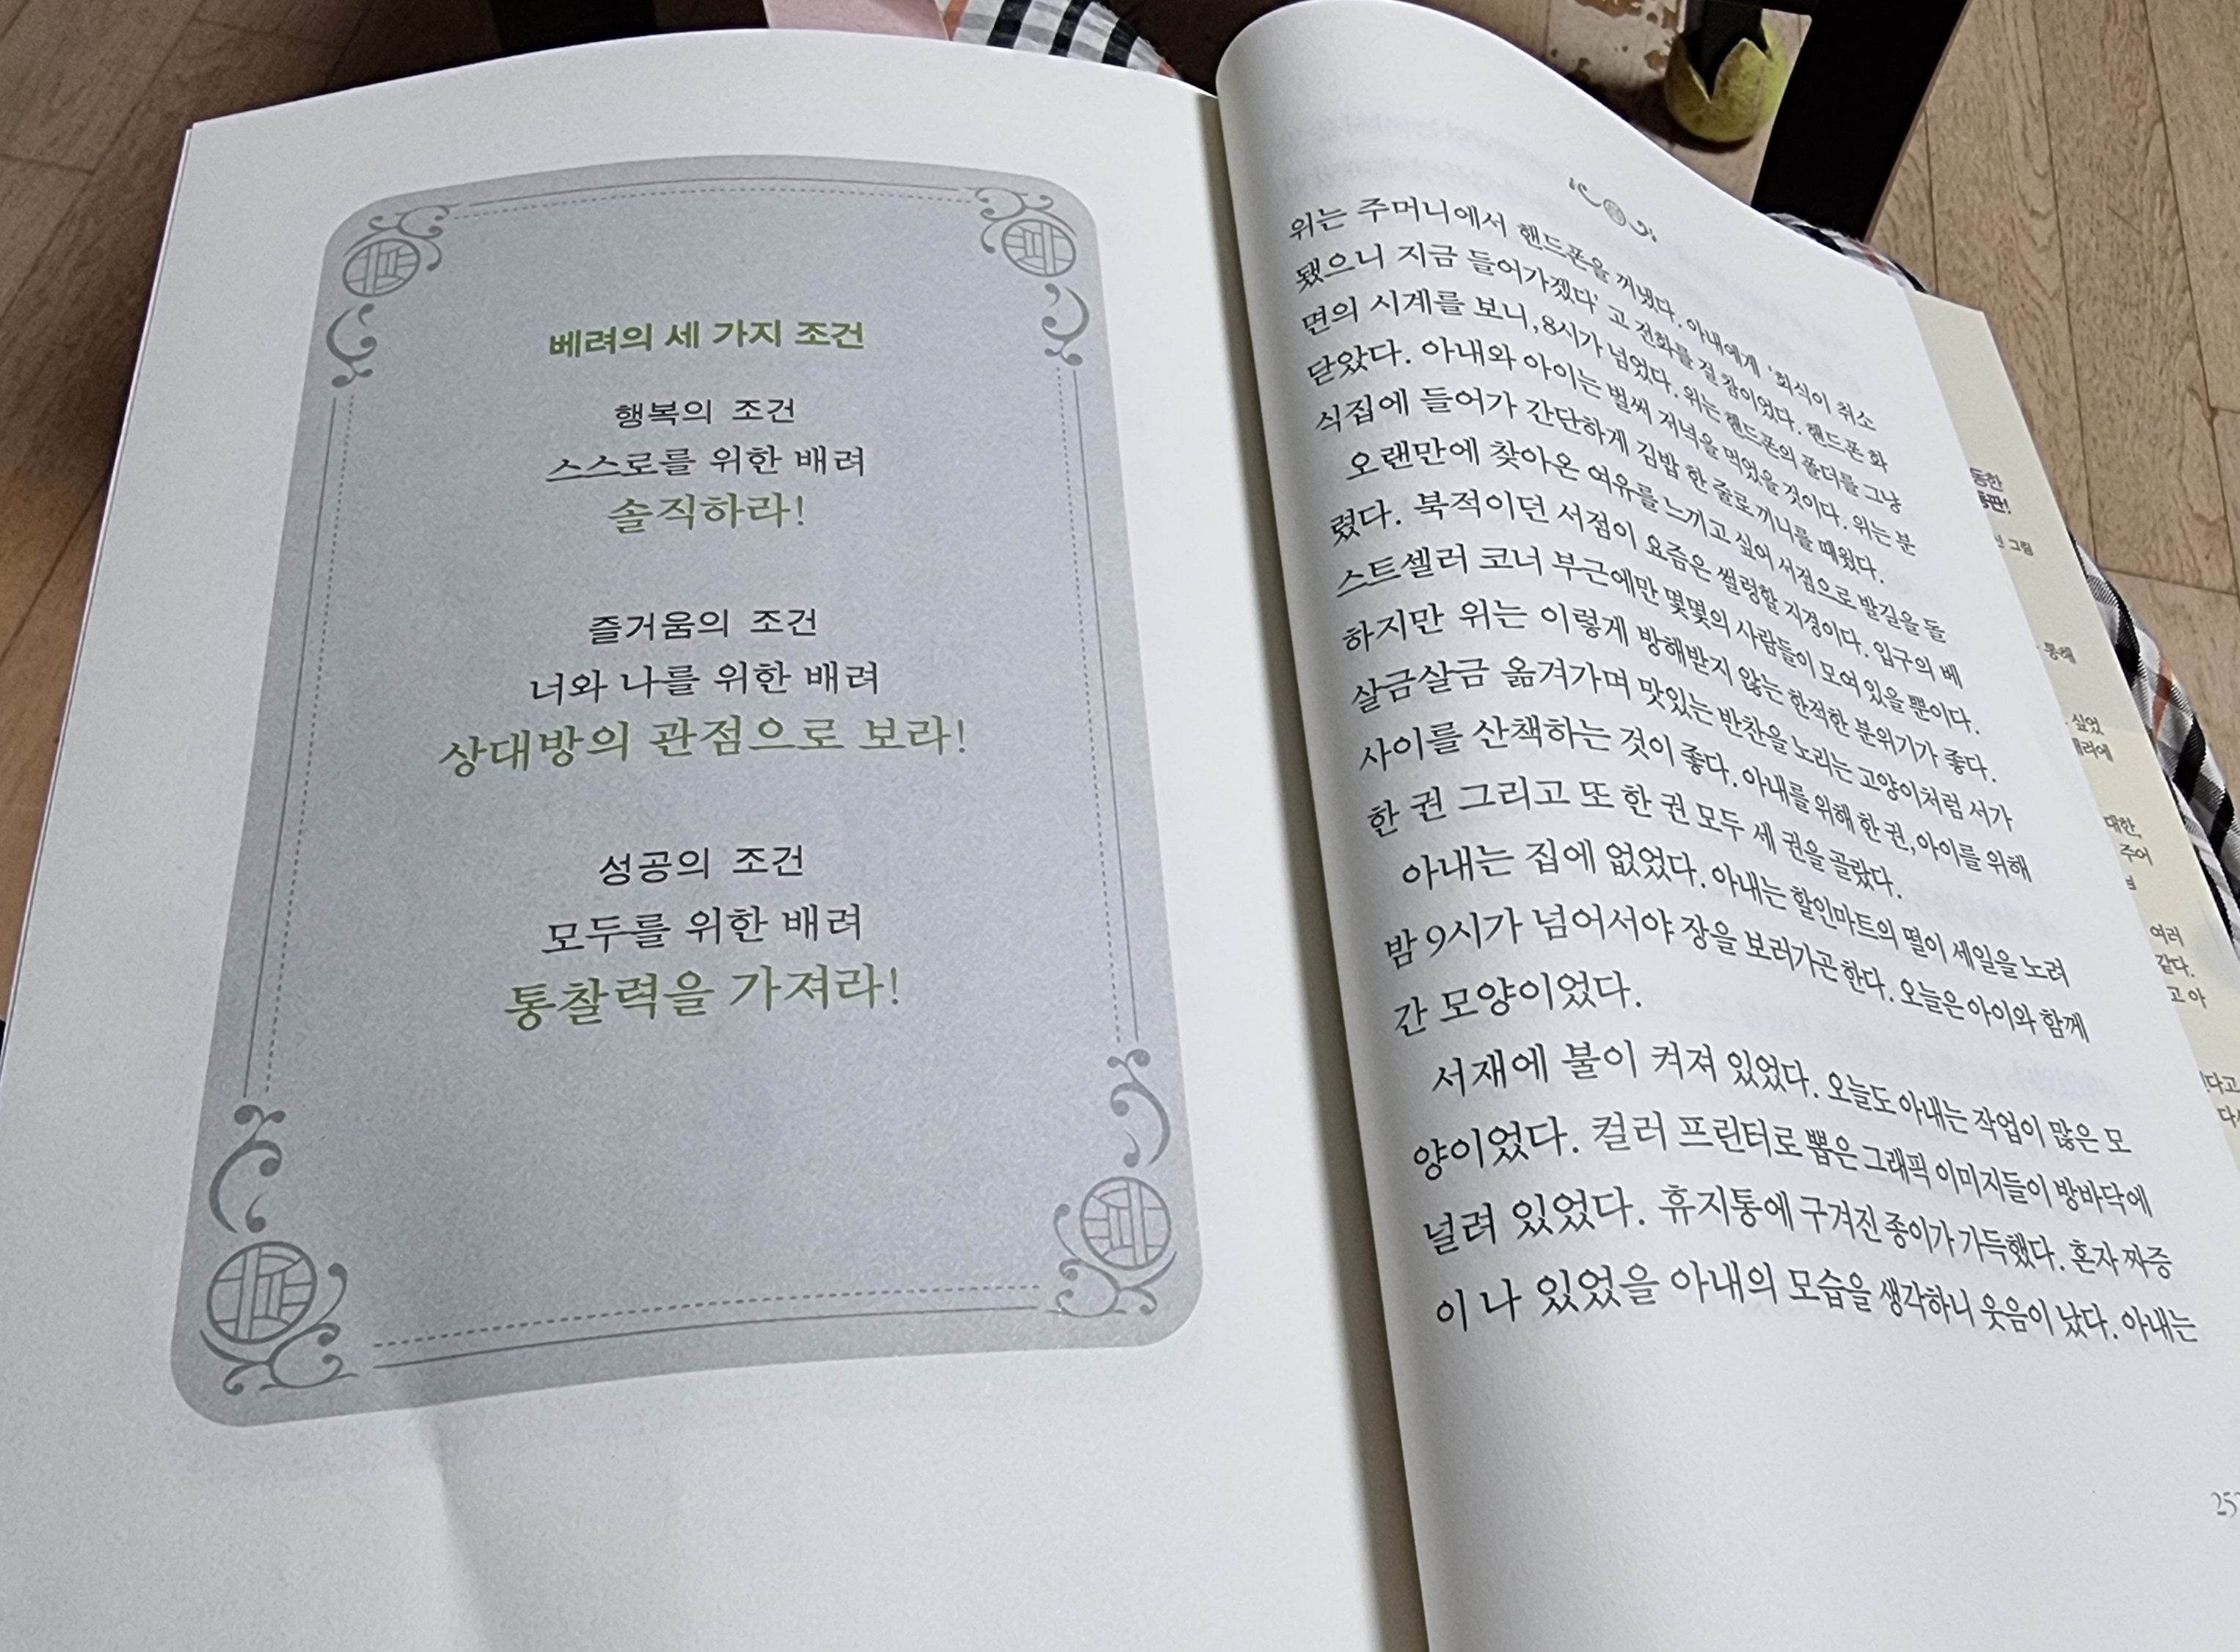 베려의 세 가지 조건
행복의 조건
스스로를 위한 배려
솔직하라!
즐거움의 조건
너와 나를 위한 배려
상대방의 관점으로 보라!
성공의 조건
모두를 위한 배려
통찰력을 가져라!
위는 주머니에서 핸드폰을 꺼냈다. 아내에게 '회식이 취소
됐으니 지금 들어가겠다' 고 전화를 걸 참이었다. 핸드폰 화
면의 시계를 보니, 8시가 넘었다. 위는 핸드폰의 폴더를 그냥
닫았다. 아내와 아이는 벌써 저녁을 먹었을 것이다. 위는 분
식집에 들어가 간단하게 김밥 한 줄로 끼니를 때웠다.
오랜만에 찾아온 여유를 느끼고 싶어 서점으로 발길을 돌
렸다. 북적이던 서점이 요즘은 썰렁할 지경이다. 입구의 베
스트셀러 코너 부근에만 몇몇의 사람들이 모여 있을 뿐이다.
하지만 위는 이렇게 방해받지 않는 한적한 분위기가 좋다.
살금살금 옮겨가며 맛있는 반찬을 노리는 고양이처럼 서가
사이를 산책하는 것이 좋다. 아내를 위해 한 권, 아이를 위해
한 권 그리고 또 한 권 모두 세 권을 골랐다.
아내는 집에 없었다. 아내는 할인마트의 떨이 세일을 노려
밤 9시가 넘어서야 장을 보러가곤 한다. 오늘은 아이와 함께
간 모양이었다.
서재에 불이 켜져 있었다. 오늘도 아내는 작업이 많은 모
양이었다. 컬러 프린터로 뽑은 그래픽 이미지들이 방바닥에
널려 있었다. 휴지통에 구겨진 종이가 가득했다. 혼자 짜증
이 나 있었을 아내의 모습을 생각하니 웃음이 났다. 아내는
동한
신 그림
통해
싶었
대한,
주어
여러
같다.
고 아